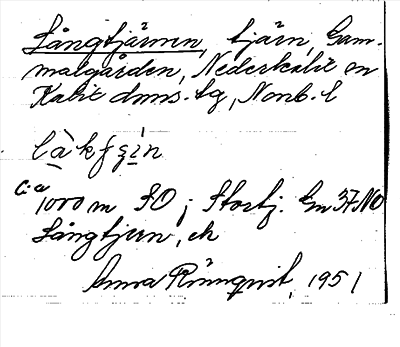 Långtjärnen, tjärn, Gam-
malgården, Nederkalix en
Kalix doms. tg, Nonb. l
C:a 1000 m SO j Stortj. Gn 37 NO
Långtjern, ek
Anna Rönnqvist, 1951